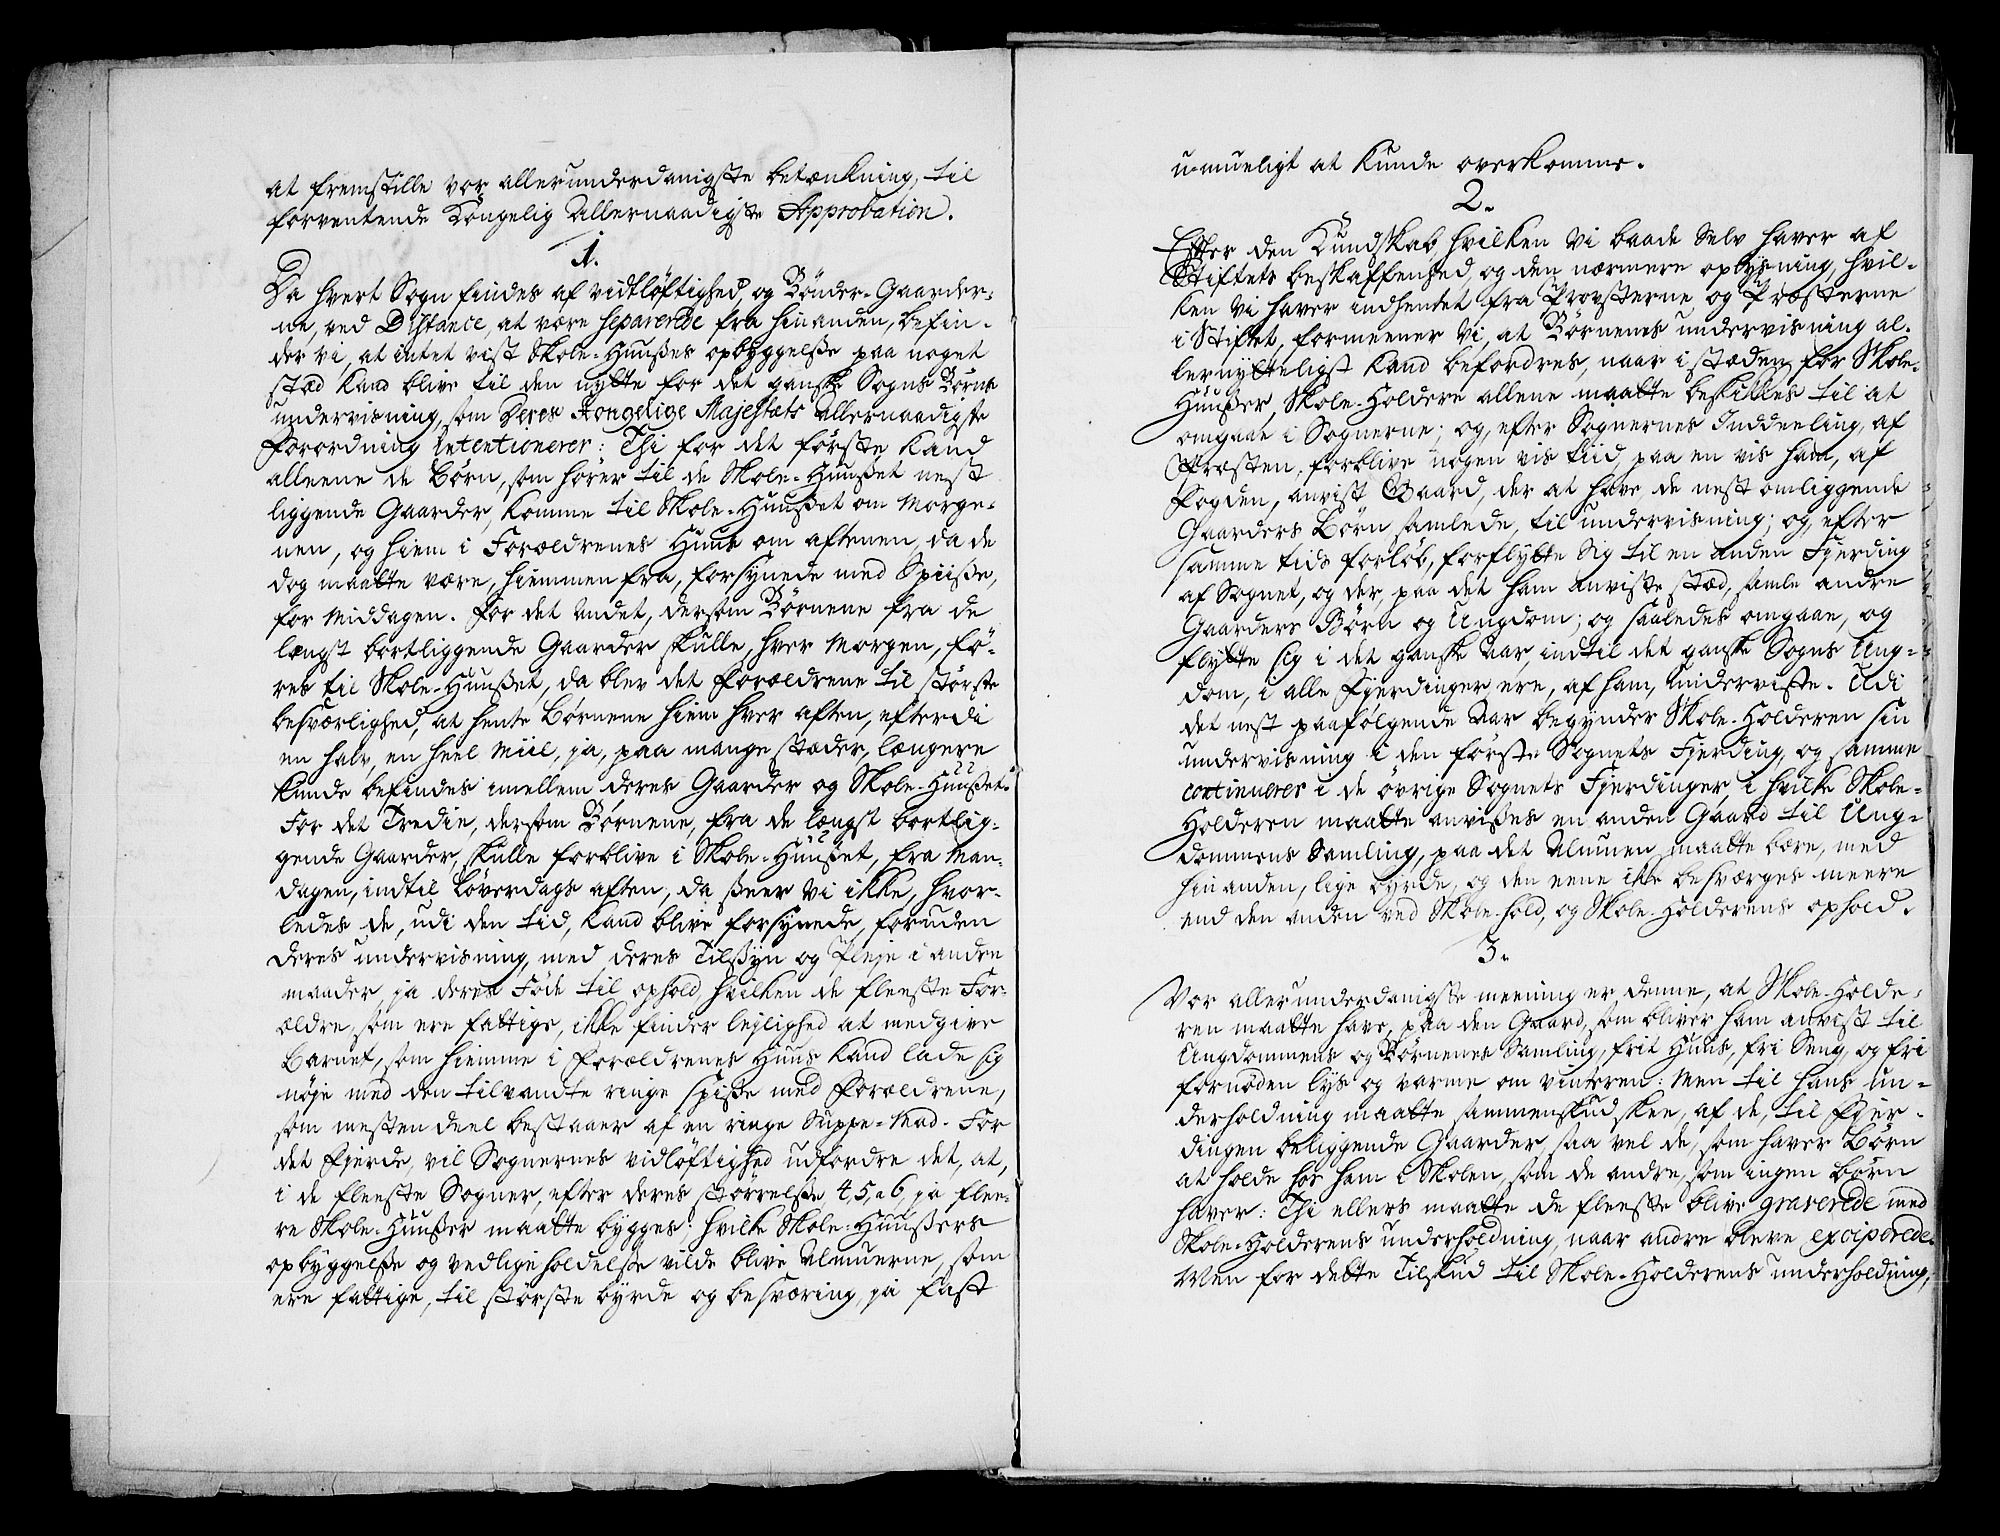 at fremstille vor allerunderdanigste betænkning, til
forventende Kongelig Allernaadigste Approbation.
1.
Da hvert Sogn findes af vidtløftighed, og Bönder-Gaarder-
ne, ved Distance, at være separerede fra hinanden, befin-
der vi, at intet vist Skole-Huuses opbyggelse paa noget
stæd kand blive til den nytte for det ganske Sogns Börns
undervisning, som Deres Kongelige Majestæts allernaadigste
Forordning intentionerer: Thi for det første kand
alleene de Börn, som hører til de Skole-Huuset nest
liggende Gaarder, komme til Skole-Huuset om Morge-
nen, og hiem i Forældrenes Huus om aftenen, da de
dog maatte være, hiemmen fra, forsynede med Spiise,
for Middagen. For det andet, dersom Börnene fra de
længst bortliggende Gaarder skulle, hver Morgen, fö-
res til Skole-Huuset, da blev det Forældrene til störste
besværlighed, at hente Börnene hiem hver aften, efterdi
en halv, en heel Miil, ja, paa mange stæder, længere
kunde befindes imellem deres Gaarder og Skole-Huuset.
For det Tredie, dersom Börnene, fra de længst bortlig-
gende Gaarder, skulle forblive i Skole-Huuset, fra Man-
dagen, indtil Löverdags aften, da seer vi ikke, hvor-
ledes de, udi den tid, kand blive forsynede, foruden
deres undervisning, med deres Tilsyn og Pleje i andre
maader, ja deres Föde til ophold, hvilken de fleeste For-
ældre, som ere fattige, ikke finder lejlighed at medgive
Barnet, som hiemme i Forældrenes Huus kand lade sig
nöje med den tilvandte ringe spise med Forældrene,
som mesten deel bestaaer af en ringe Suppe-Mad. For
det Fjerde, vil Sognernes vidlöftighed udfordre det, at,
i de fleeste Sogner, efter deres störrelse 4, 5, a 6, ja flee-
re Skole-Huuser maatte bygges; hvilke Skole-Huusers
opbyggelse og vedligeholdelse vilde blive Almuerne, som
ere fattige, til störste byrde og besværing, ja fast
u-mueligt at kunde overkomme.
2.
Efter den Kundskab hvilken vi baade selv haver af
Stiftets beskaffenhed, og den nærmere oplysning, hvil-
ken vi haver indhentet fra Provsterne og Præsterne
i Stiftet, formeener vi, at Börnenes undervisning al-
lernytteligst kand befordres, naar i stæden for Skole-
Huuser, Skole-Holdere allene maatte beskikkes til at
omgaae i Sognerne; og, efter Sognernes Inddeeling, af
Præsten, forblive nogen vis tiid, paa en vis ham, af
Fogden, anvist Gaard, der at have, de nest omliggende
Gaarders Börn, samlede, til undervisning; og, efter
samme tids forlöb, forflytte sig til en anden Fjerding
af Sognet, og der, paa det ham anviste stæd, samle andre
Gaarders Börn og Ungdom; og saaledes omgaae, og
flytte sig i det ganske Aar, indtil det ganske Sogns Ung-
dom, i alle Fjerdinger, ere, af ham, underviste. Udi
det nest paafølgende Aar begynder Skole-Holderen sin
undervisning i den første Sognets Fjerding, og samme
continuerer i de övrige Sognets Fjerdinger, i hvilke Skole-
Holderen maatte anvises en anden Gaard til Ung-
dommens Samling, paa det Almuen maatte bære, med
hinanden, lige byrde, og den eene ikke besværges meere
end den anden ved Skole-hold, og Skole-Holderens ophold.
3.
Vor allerunderdanigste meening er denne, at Skole-Holde-
ren maatte have, paa den Gaard, som bliver ham anvist til
Ungdommens og Börnenes Samling, frit Huus, fri Seng, og fri
fornøden lys og varme om vinteren: Men til hans un-
derholdning maatte sammenskud skee, af de, til Fjer-
dingen beliggende Gaarder, saa vel de, som haver Börn
at holde hos ham i Skolen, som de andre, som ingen börn
haver: Thi ellers maatte de fleeste blive graverede med
Skole-Holderens underholdning, naar andre bleve exciperede.
Men for dette Tilskud til Skole-Holderens underholdning,